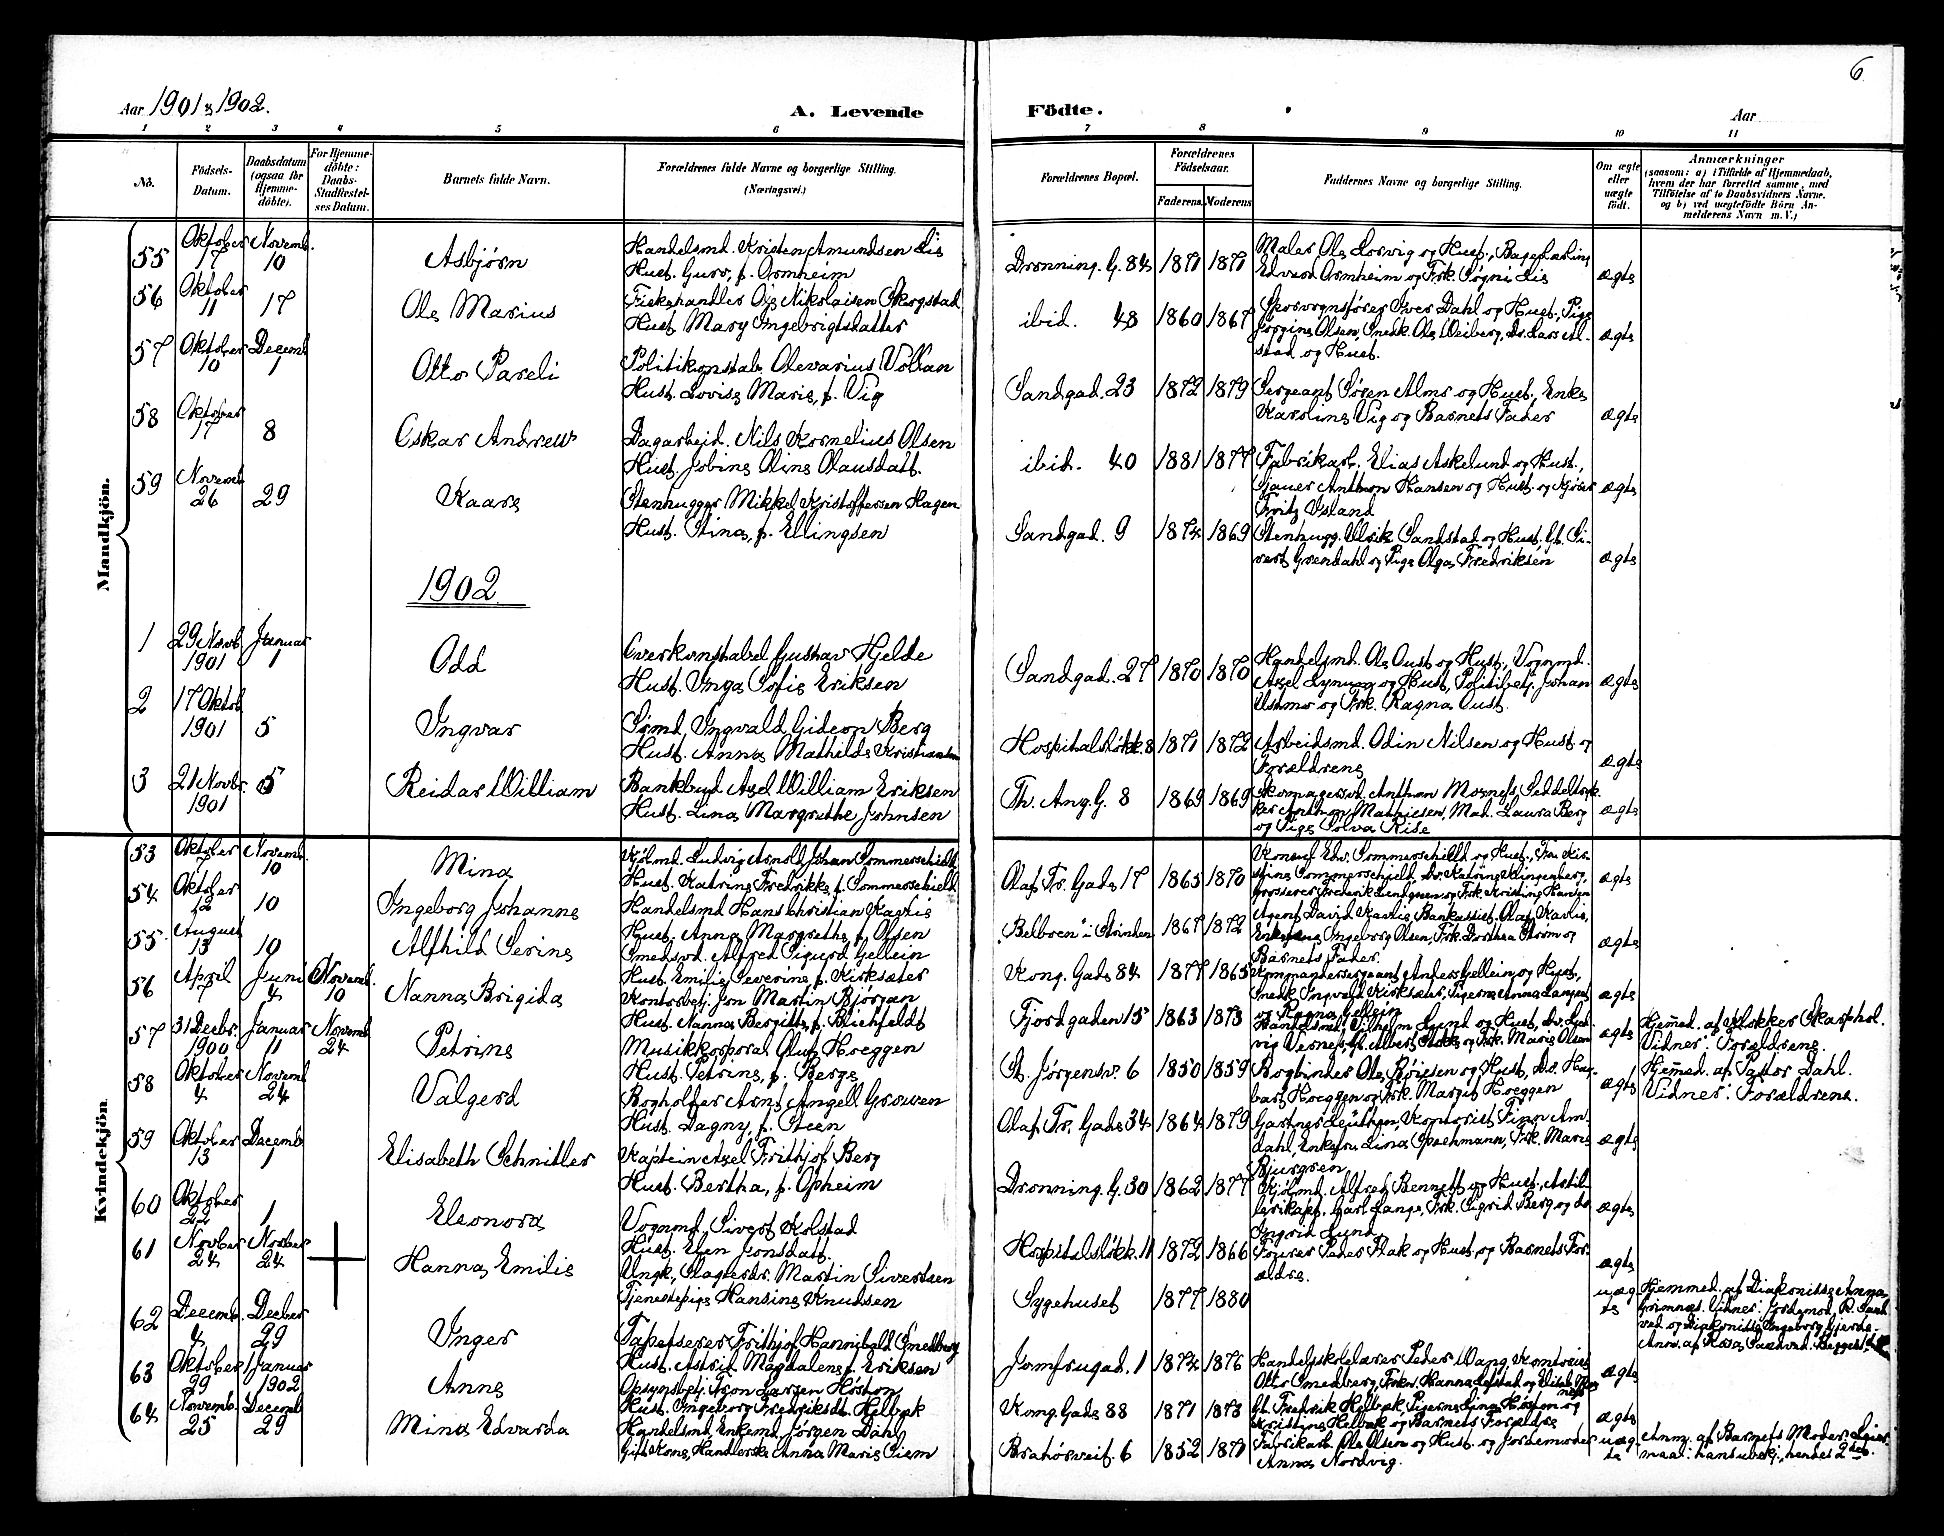 6
Aar 1901 & 1902.
A. Levende Födte.
Aar
1 2 3 4 5 6 7 8 9 10 11
No.
Födsels-Datum.
Daabsdatum (ogsaa for Hjemmedöbte).
For Hjemmedöbte: Daabs-Stadfæstelses Datum.
Barnets fulde Navn.
Forældrenes fulde Navne og borgerlige Stilling. (Næringsvei.)
Forældrenes Bopæl.
Forældrenes Födselsaar.
Faderens. Moderens
Faddernes Navne og borgerlige Stilling.
Om ægte eller uægte födt.
Anmærkninger
(saasom: a) i Tilfælde af Hjemmedaab, hvem der har forrettet samme, med Tilföielse af to Daabsvidners Navne, og b) ved uægtefödte Börn Anmelderens Navn m. V.)
Mandkjön.
55 Oktober 17 Novemb. 10 Asbjørn
Handelsmd. Kristen Amundsen Lis
Hust. Guro, f. Ormheim
Dronning. G. 84 1871 1871
Maler Ole Lorvig og Hust.,
Edvard Ormheim og Frk. Søgni Lis
ægte
56 Oktober 11 17 Ole Marius
Fiskehandler Ole Nikolaisen Skogstad
Hust. Mary Ingebrigtsdatter
ibid. 48 1860 1867
Sporvognsfører Iver Dahl og Hust., Pige
Jørgine Olsen, Snedk. Ole Weiberg,
stad og Hust.
ægte
57 Oktober 10 Decemb 1 Otto Pareli
Politikonstab. Olevarius Vollan
Hust. Lovise Marie, f. Vig
Sandgad. 23 1872 1879
Sergeant Søren Almo og Hust., Enke
Karoline Vig og Barnets Fader
ægte
58 Oktober 17 8 Oskar Andreas
Dagarbeid. Nils Kornelius Olsen
Hust. Jobine Oline Olausdatt.
ibid. 40 1881 1877
Fabrikarb. Elias Askelund og Hust.,
Sjauer Anthon Hansen og Hust. og Kjører
Fritz Ysland
ægte
59 Novemb 26 29 Kaare
Stenhugger Mikkel Kristoffersen Hagen
Hust. Stina, f. Ellingsen
Sandgad. 9 1874 1869
Stenhugg. Ulrik Sandstad og Hust. Gt. Si-
vert Grendahl og Pige Olga Fredriksen
ægte
1902
1 29 Novb. 1901 Januar 1 Odd
Overkonstabel Gustav Hjelde
Hust. Inga Sofie Eriksen
Sandgad. 27 1870 1870
Handelsmd. Ole Oust og Hust, Vognmd.
Axel Lynum og Hust, Politibetj. Johan
Ustmo og Frk. Ragna Oust.
ægte
2 17 Oktob 1901 5 Ingvar
Sømd. Ingvald Gideon Berg
Hust. Anna Mathilde Kristiansen
Hospitalsløkk. 8 1871 1872
Arbeidsmd. Odin Nilsen og Hust og
Forældrene
ægte
3 21 Novbr. 1901 5 Reidar William
Bankbud Axel William Eriksen
Hust. Lina Margrethe Johnsen
Th. Ang. G. 8 1869 1869
Skomagersvd. Anthon Moxnes, Seddeltryk-
ker Anthon Mathiesen, Mad. Laura Berg
og Pige Solva Rise
ægte
Kvindekjön
53 Oktober Novemb. 10 Mina
Kjølmd. Ludvig Arnold Johan Sommerschield
Hust. Katrine Fredrikke f. Sommerschield
Olaf Tr. Gade 17 1865 1870
Konsul Edv. Sommerschield og Hust., Fru Kir-
stine Sommerschield, do. Katrine Klingenberg,
Grosserer Frederik Lundgreen og Frk Kristine Hansen
ægte
54 Oktober 12 10 Ingeborg Johanne
Handelsmd Hans Christian Kavlie
Hust. Anna Margrethe, f. Olsen
"Belboen" i Strinden 1867 1872
Agent David Kavlie, Bankassist. Olaf Kavlie,
Ingeborg Olsen, Frk. Dorthea Strøm og
Barnets Fader.
ægte
55 August 13 10 Alfhild Serine
Smedsvd. Alfred Sigurd Gellein
Hust. Emilie Severine f. Kirksæter
Kong. Gade 84 1877 1865
Kommandersergeant Anders Gellein og Hust.,
Snedk. Ingvald Kirksæter, Pigerne Anna Langaas
og Ragna Gellein
ægte
56 April 7 Juni 4 Novemb. 10 Nanna Brigida
Kontorbetj. Jon Martin Bjørgan
Hust. Nanna Bergitte, f. Blichfeldt
Fjordgaden 15 1863 1873
Handelsmd. Vilhelm Lund og Hust, do. Lud-
vig Vernes, og Frk. Marie Olsen
ægte
Hjemmed. af Klokker Skarphol.
Vidner: Forældrene.
57 31 Decbr. 1900 Januar 11 Novemb 24 Petrine
Musikkorporal Oluf Hoeggen
Hust. Petrine, f. Berge
St. Jørgensv. 6 1850 1859
Bogbinder Ole Bøiesen og Hust, do. Ha-
bart Hoeggen og Frk. Margit Hoeggen
ægte
Hjemmed. af Pastor Dahl.
Vidner: Forældrene.
58 Oktober 4 Novemb 24 Valgerd
Bogholder Arnt Angell Grouven
Hust. Dagny, f. Steen
Olaf Tr. Gade 34 1864 1879
Gartner Leüthen, Kontorist Finn Am-
dahl, Enkefru Lina Spachmann, Frk. Marie
Bjurgren
ægte
59 Oktober 13 Decemb 1 Elisabeth Schnitler
Kaptein Axel Frithjof Berg
Hust. Bertha, f. Opheim
Dronning. G. 30 1862 1877
Kjølmd. Alfred Bennett og Hust., Artil-
lerikapt. Carl Lange, Frk. Sigrid Berg og do
Ingrid Lund
ægte
60 Oktober 22 1 Eleonora
Vognmd. Sivert Kolstad
Hust. Elen Jonsdatt.
Hospitalsløkk. 11 1872 1866
Fourer Peder Flak og Hust. og Barnets For-
ældre.
ægte
61 Novber 24 Novber 24 Hanna Emilie
Ungk., Slagterdr. Martin Sivertsen
Tjenestepige Hansine Knudsen
Sygehuset 1877 1880
uægte
Hjemmed. af Diakonisse Anna
Grimnæs. Vidner: Jordemod. R. Sand-
ved og Diakonisse Ingeborg Gjerde.
62 Decemb. 4 Decber 29 Inger
Tapetserer Frithjof Hannibald Smedberg
Hust. Astrid Magdalene, f. Eriksen
Jomfrugad. 1 1874 1876
Handelskolelærer Peder Wang, Kontorist
Otto Smedberg, Frkr. Hanna Løfstad og
ægte
63 Oktober 29 Januar 1902 Anne
Opsynsbetj. Aron Larsen Høston
Hust. Ingeborg Fredriksdt. Helbæk
Kong. Gade 88 1871 1873
Gt. Fredrik Helbæk Pigerne Lina Høston og
Kristine Helbæk og Barnets Forældre
ægte
64 Novemb. 25 Decemb 29 Mina Edvarda
Handelsmd, Enkemd. Jørgen Dahl
Gift Kone, Handlerske Anna Marie Siem
Bratørveit. 6 1852 1871
Fabrikarb. Ole Olsen og Hust. og Jordemoder
Anna Nordvig.
uægte
Anm. af Barnets Moder. Leier-
maal: hans ubekj., hendes 2det.